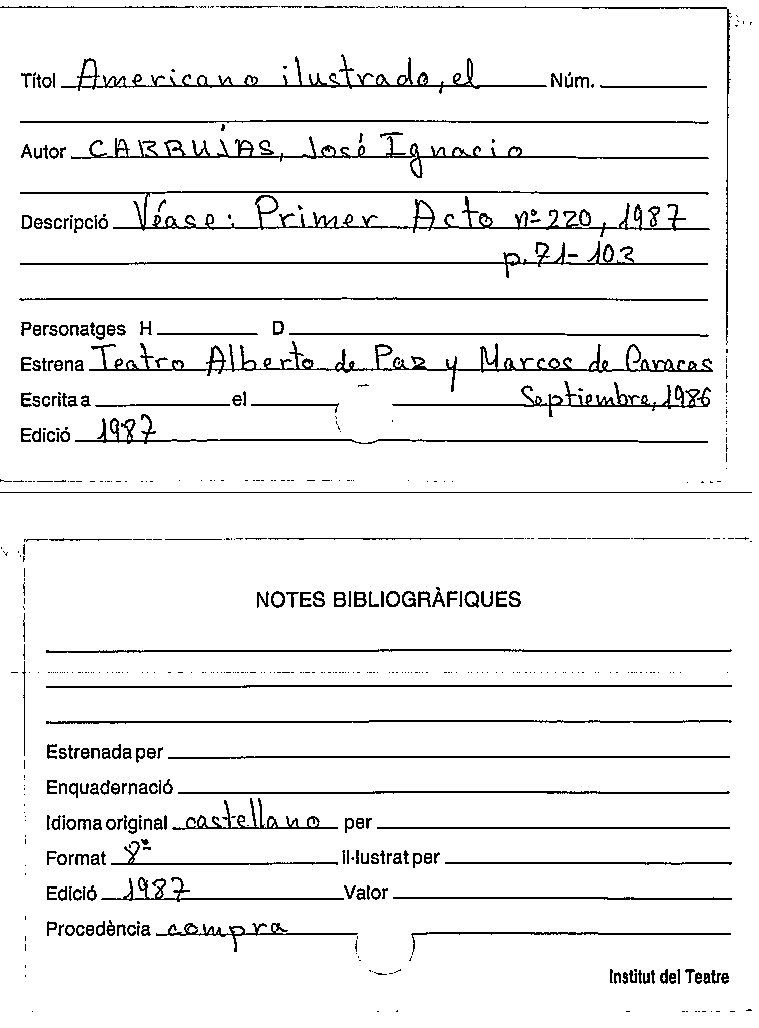 Títol Americano ilustrado, el Núm.
Autor CARRUJAS, José Ignacio
Descripció Véase: Primer Acto nº 220, 1987
p. 71-103
Personatges H D
Estrena Teatro Alberto de Paz y Marcos de Caracas
Escrita a el Septiembre, 1986
Edició 1987
NOTES BIBLIOGRÀFIQUES
Estrenada per
Enquadernació
Idioma original castellano per
Format 8º il·lustrat per
Edició 1987 Valor
Procedència compra
Institut del Teatre